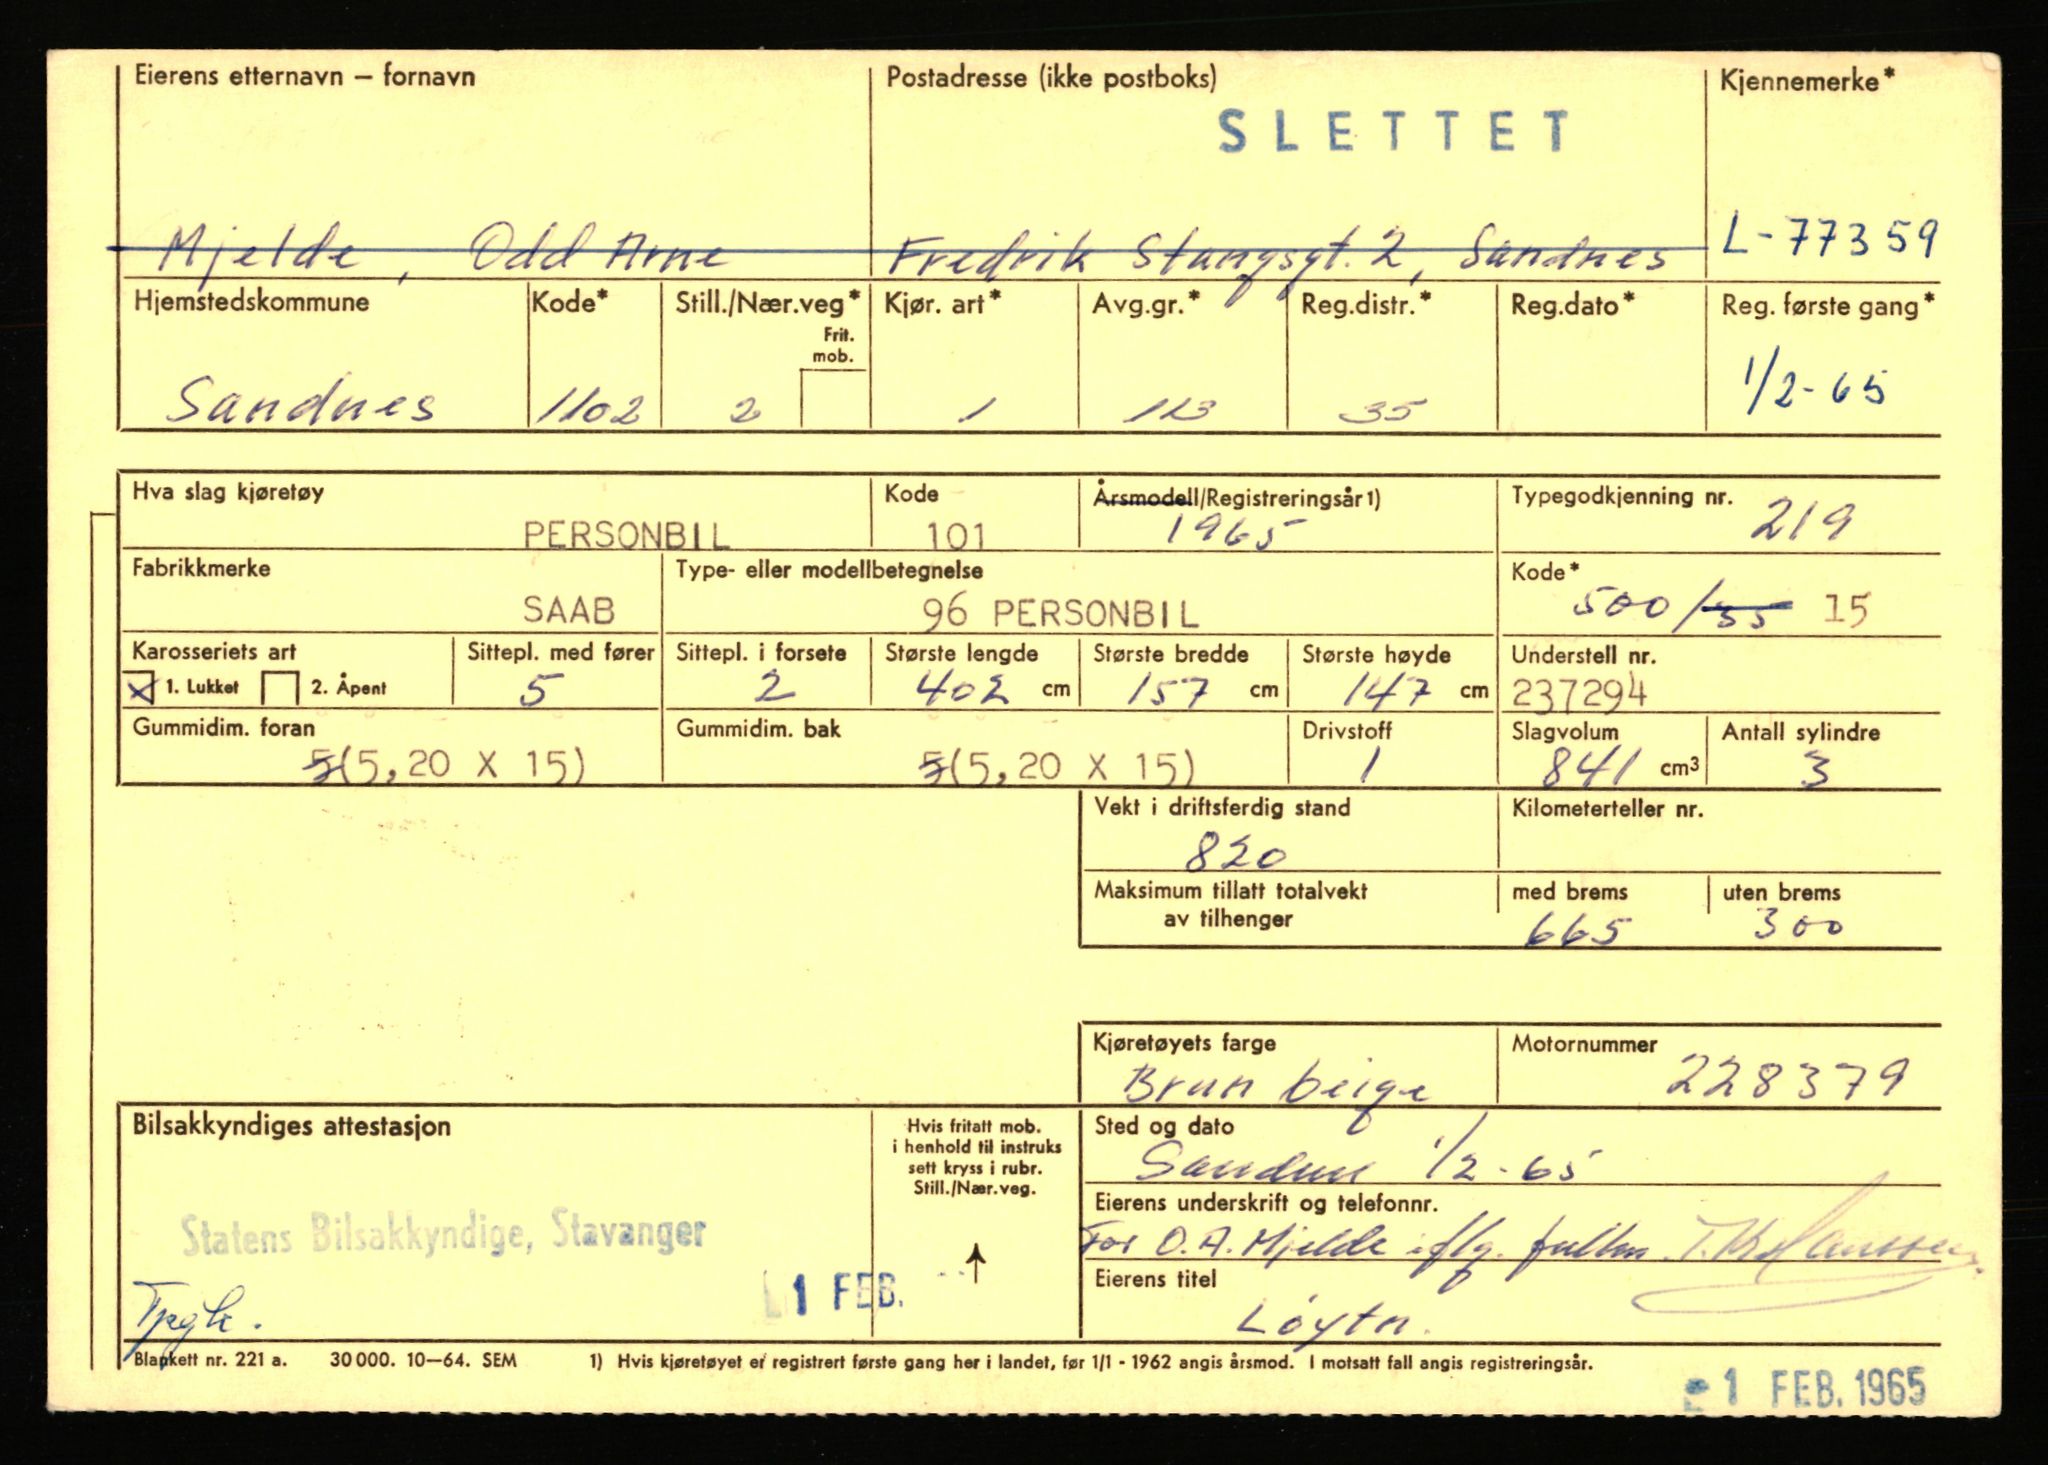 Eierens etternavn – fornavn Postadresse (ikke postboks) Kjennemerke*
SLETTET
Mjelde, Odd Arne Fredrik Stangsgt. 2, Sandnes L-77359
Hjemstedskommune Kode* Still./Nær.veg* Kjør. art* Avg.gr.* Reg.distr.* Reg.dato* Reg. første gang*
Frit.
mob.
Sandnes 1102 2 1 113 35 1/2-65
Hva slag kjøretøy Kode Årsmodell/Registreringsår 1) Typegodkjenning nr.
PERSONBIL 101 1965 219
Fabrikkmerke Type- eller modellbetegnelse Kode*
SAAB 96 PERSONBIL 500/55 15
Karosseriets art Sittepl. med fører Sittepl. i forsete Største lengde Største bredde Største høyde Understell nr.
1. Lukket 2. Åpent 5 2 402 cm 157 cm 147 cm 237294
Gummidim. foran Gummidim. bak Drivstoff Slagvolum Antall sylindre
(5,20 X 15) (5,20 X 15) 1 841 cm³ 3
Vekt i driftsferdig stand Kilometerteller nr.
820
Maksimum tillatt totalvekt med brems uten brems
av tilhenger 665 300
Kjøretøyets farge Motornummer
Brun beige 228379
Bilsakkyndiges attestasjon Hvis fritatt mob. Sted og dato
i henhold til instruks
sett kryss i rubr.
Still./Nær.veg.
Sandnes 1/2-65
Eierens underskrift og telefonnr.
Statens Bilsakkyndige, Stavanger For O.A. Mjelde iflg. fullm.
Eierens titel
1 FEB.
Løytn.
Blankett nr. 221 a. 30 000. 10–64. SEM 1) Hvis kjøretøyet er registrert første gang her i landet, før 1/1 - 1962 angis årsmod. I motsatt fall angis registreringsår.
1 FEB. 1965